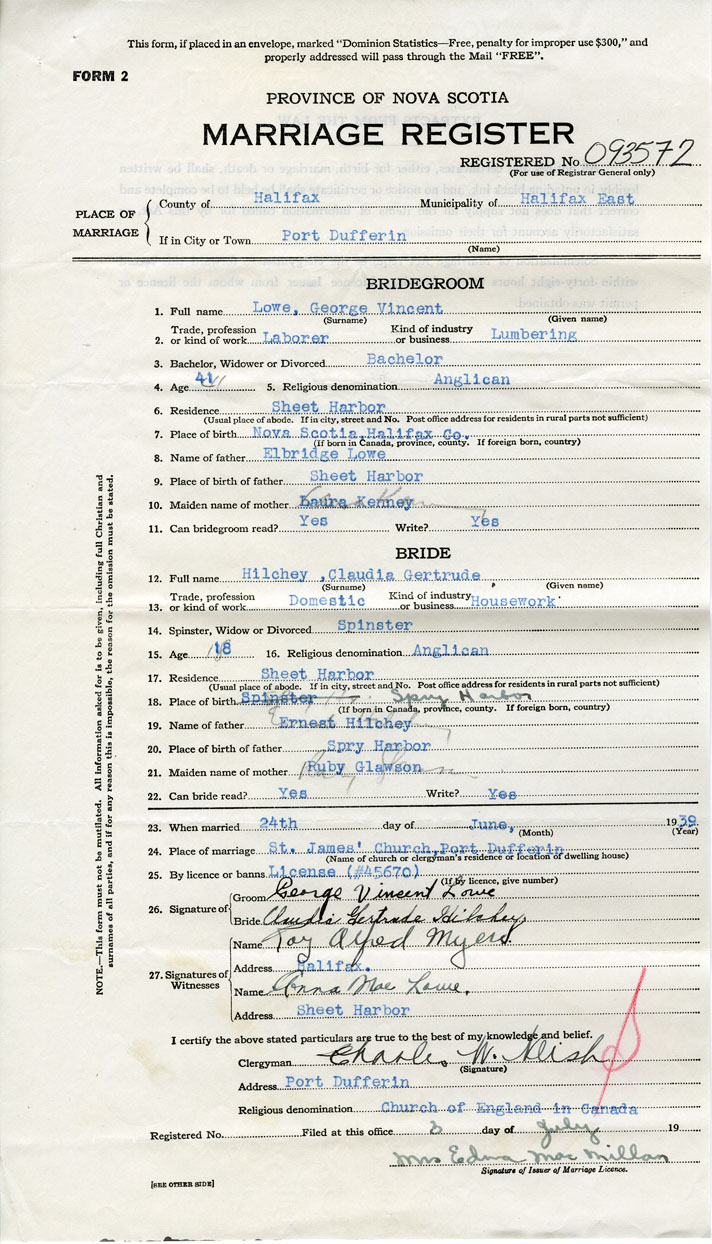 This form, if placed in an envelope, marked "Dominion Statistics—Free, penalty for improper use $300," and
properly addressed will pass through the Mail "FREE".
FORM 2
PROVINCE OF NOVA SCOTIA
MARRIAGE REGISTER
REGISTERED No. 093572
(For use of Registrar General only)
PLACE OF MARRIAGE
County of Halifax Municipality of Halifax East
If in City or Town Port Dufferin
(Name)
BRIDEGROOM
1. Full name Lowe, George Vincent
(Surname) (Given name)
2. Trade, profession or kind of work Laborer Kind of industry or business Lumbering
3. Bachelor, Widower or Divorced Bachelor
4. Age 41 5. Religious denomination Anglican
6. Residence Sheet Harbor
(Usual place of abode. If in city, street and No. Post office address for residents in rural parts not sufficient)
7. Place of birth Nova Scotia, Halifax Co.
(If born in Canada, province, county. If foreign born, country)
8. Name of father Elbridge Lowe
9. Place of birth of father Sheet Harbor
10. Maiden name of mother Laura Kenney
11. Can bridegroom read? Yes Write? Yes
BRIDE
12. Full name Hilchey ,Claudia Gertrude
(Surname) (Given name)
13. Trade, profession or kind of work Domestic Kind of industry or business Housework
14. Spinster, Widow or Divorced Spinster
15. Age 18 16. Religious denomination Anglican
17. Residence Sheet Harbor
(Usual place of abode. If in city, street and No. Post office address for residents in rural parts not sufficient)
18. Place of birth Spinster Spry Harbor
(If born in Canada, province, county. If foreign born, country)
19. Name of father Ernest Hilchey
20. Place of birth of father Spry Harbor
21. Maiden name of mother Ruby Glawson
22. Can bride read? Yes Write? Yes
23. When married 24th day of June, 1939
(Month) (Year)
24. Place of marriage St. James' Church, Port Dufferin
(Name of church or clergyman's residence or location of dwelling house)
25. By licence or banns License (#45670)
(If by licence, give number)
26. Signature of Groom George Vincent Lowe
Bride Claudia Gertrude Hilchey
27. Signatures of Witnesses
Name Roy Alfred Myers.
Address Halifax.
Name Anna Mae Lowe.
Address Sheet Harbor
I certify the above stated particulars are true to the best of my knowledge and belief.
Clergyman Charles W.
(Signature)
Address Port Dufferin
Religious denomination Church of England in Canada
Registered No. Filed at this office 3 day of July 19
Mrs Edna MacMillan
Signature of Issuer of Marriage Licence.
[SEE OTHER SIDE]
NOTE.—This form must not be mutilated. All information asked for is to be given, including full Christian and
surnames of all parties, and if for any reason this is impossible, the reason for the omission must be stated.